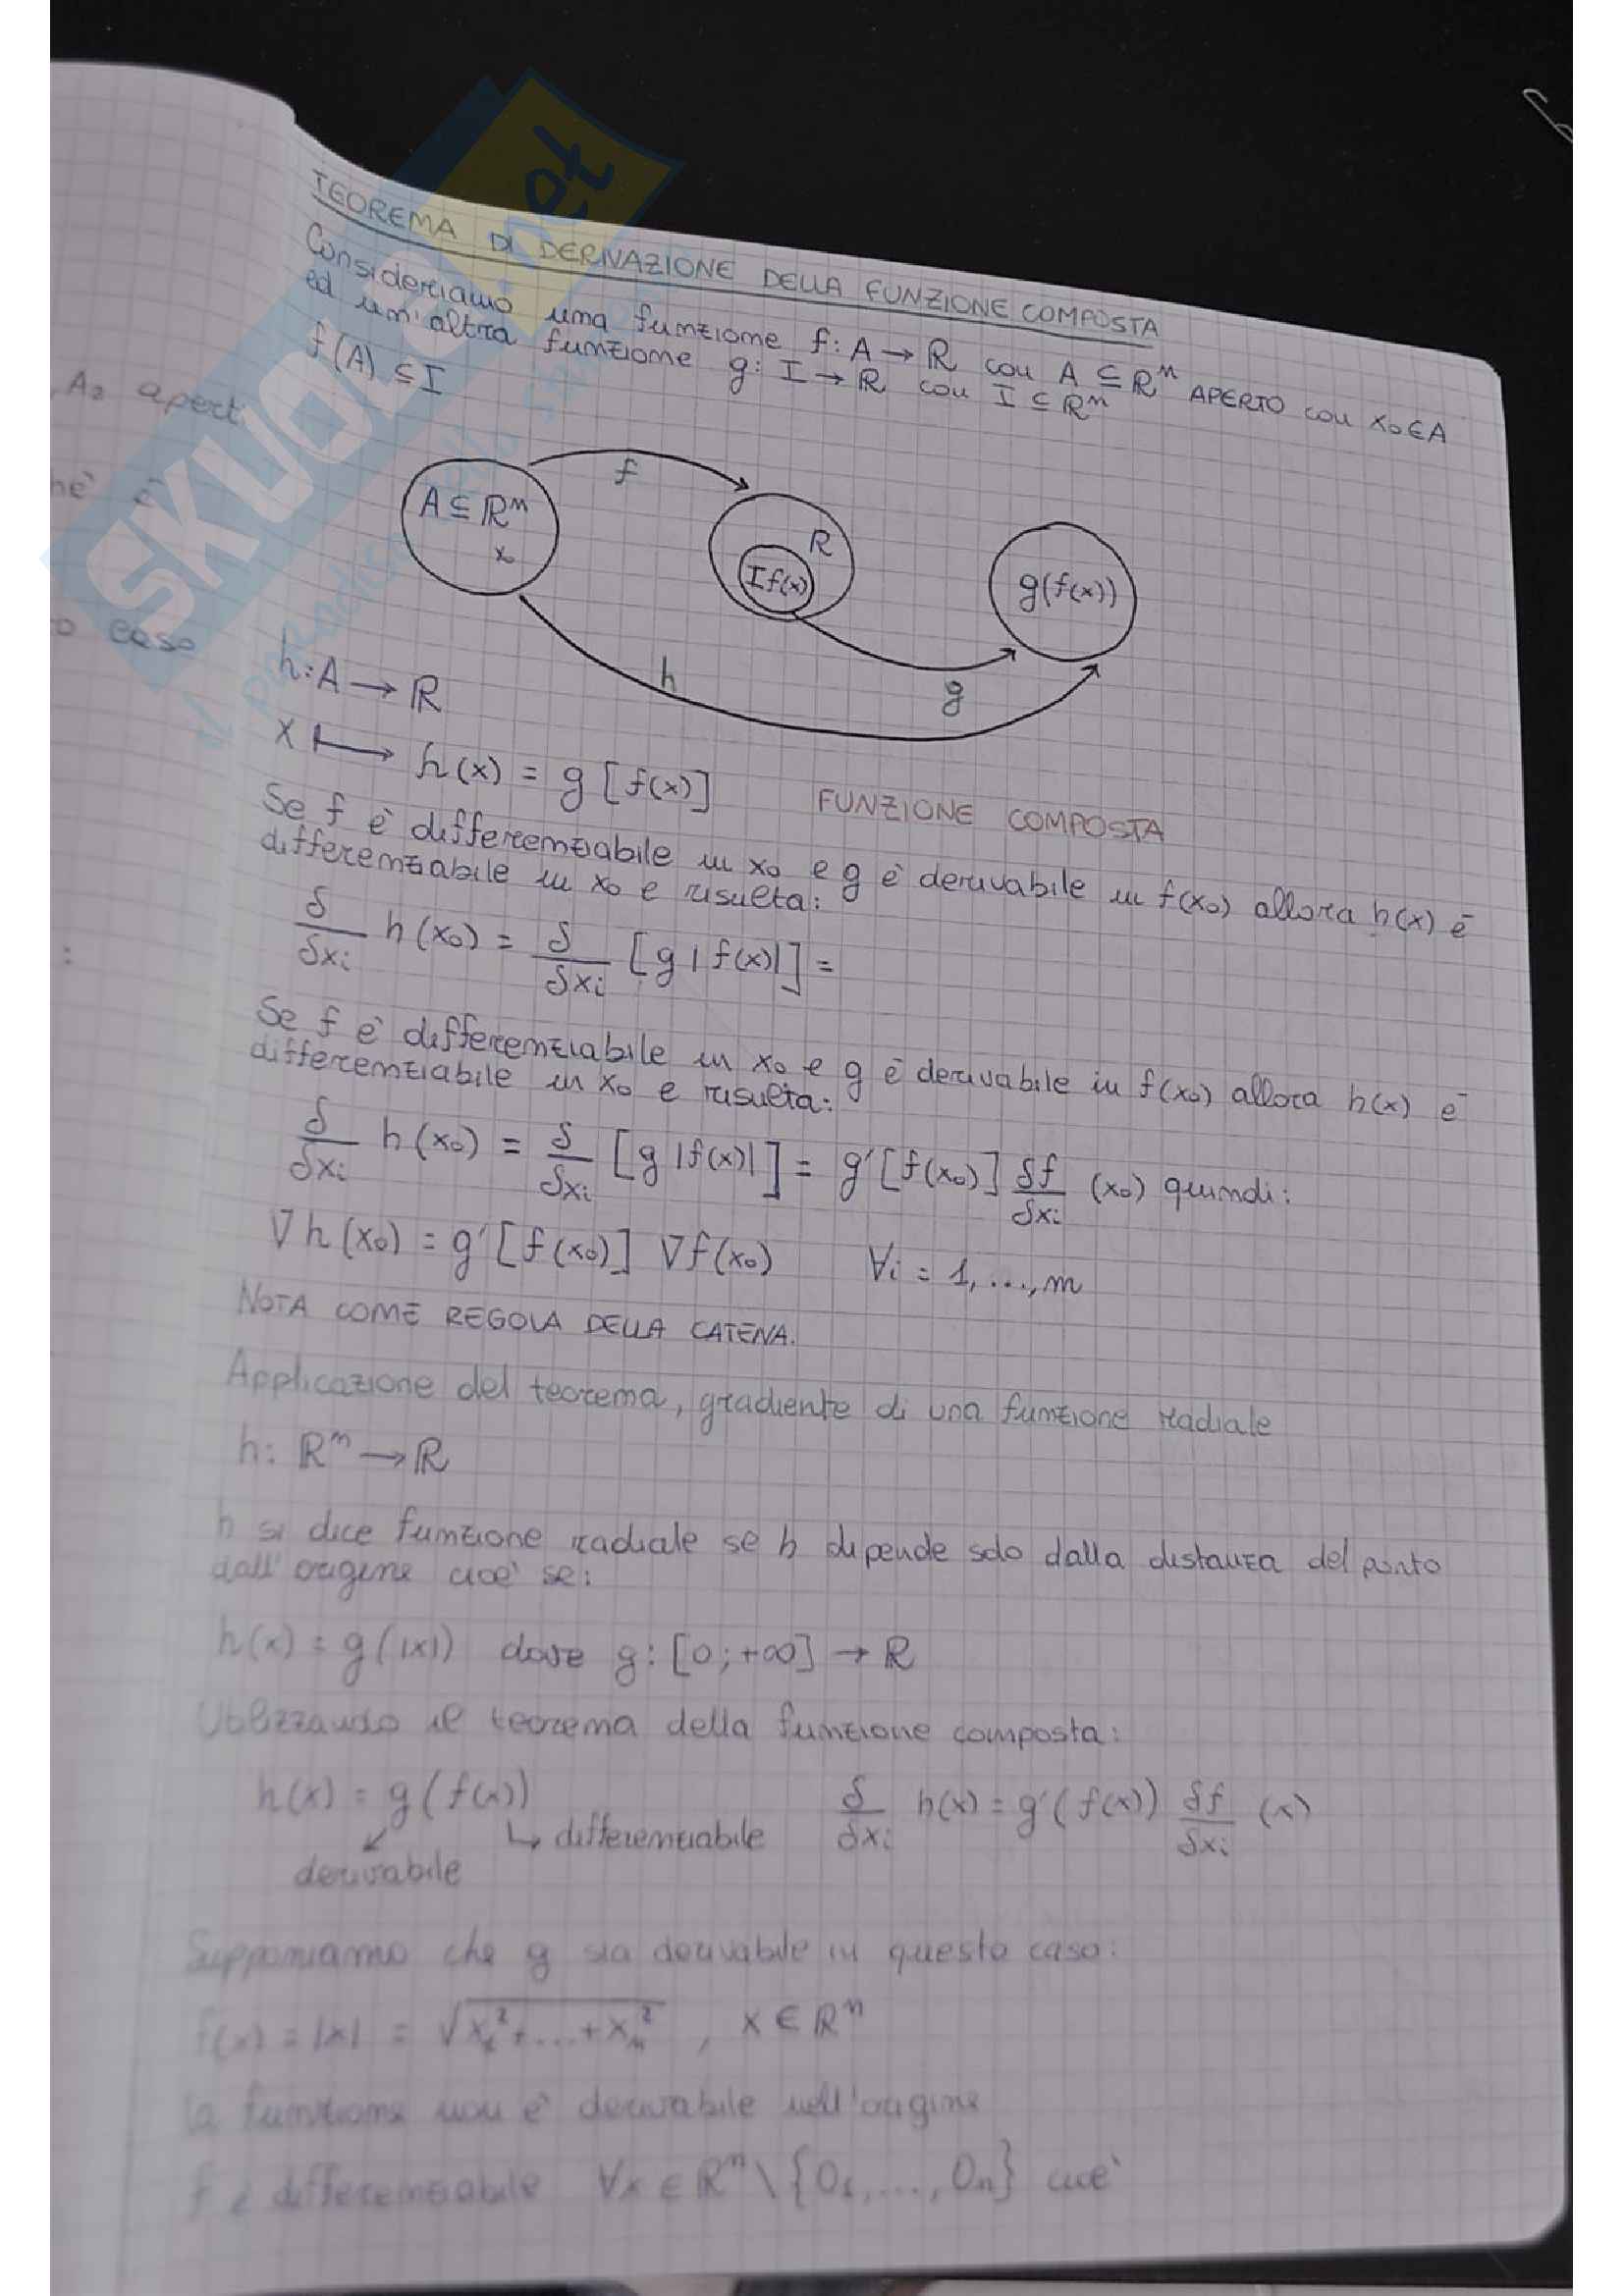 TEOREMA DI DERIVAZIONE DELLA FUNZIONE COMPOSTA
Consideriamo una funzione f: A → ℝ con A ⊆ ℝⁿ APERTO con x₀ ∈ A
ed un'altra funzione g: I → ℝ con I ⊆ ℝⁿ
f(A) ⊆ I
, A₂ aperti
f
A ⊆ ℝⁿ
x
ℝ
I f(x)
g(f(x))
h
g
caso
h: A → ℝ
x ⟼ h(x) = g [f(x)] FUNZIONE COMPOSTA
Se f è differenziabile in x₀ e g è derivabile in f(x₀) allora h(x) è
differenziabile in x₀ e risulta:
δ/δxᵢ h(x₀) = δ/δxᵢ [g |f(x)|] =
Se f è differenziabile in x₀ e g è derivabile in f(x₀) allora h(x) è
differenziabile in x₀ e risulta:
δ/δxᵢ h(x₀) = δ/δxᵢ [g |f(x)|] = g'[f(x₀)] δf/δxᵢ (x₀) quindi:
∇h(x₀) = g'[f(x₀)] ∇f(x₀) ∀i = 1, ..., n
NOTA COME REGOLA DELLA CATENA.
Applicazione del teorema, gradiente di una funzione radiale
h: ℝⁿ → ℝ
h si dice funzione radiale se h dipende solo dalla distanza del punto
dall'origine cioè se:
h(x) = g(|x|) dove g: [0; +∞] → ℝ
Utilizzando il teorema della funzione composta:
h(x) = g(f(x)) δ/δxᵢ h(x) = g'(f(x)) δf/δxᵢ (x)
↳ differenziabile
derivabile
Supponiamo che g sia derivabile in questo caso:
f(x) = |x| = √(x₁² + ... + xₙ²) , x ∈ ℝⁿ
la funzione non è derivabile nell'origine
f è differenziabile ∀x ∈ ℝⁿ \ {0₁, ..., 0ₙ} cioè
SKUOLA.net